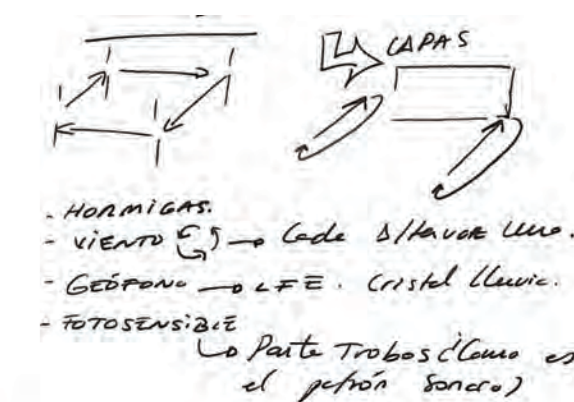 CAPAS
- HORMIGAS.
- VIENTO → Cada Altavoz uno.
- GEÓFONO → LFE. Cristal lluvia.
- FOTOSENSIBLE
↳ Parte Trobos (Como es
el patrón sonoro)